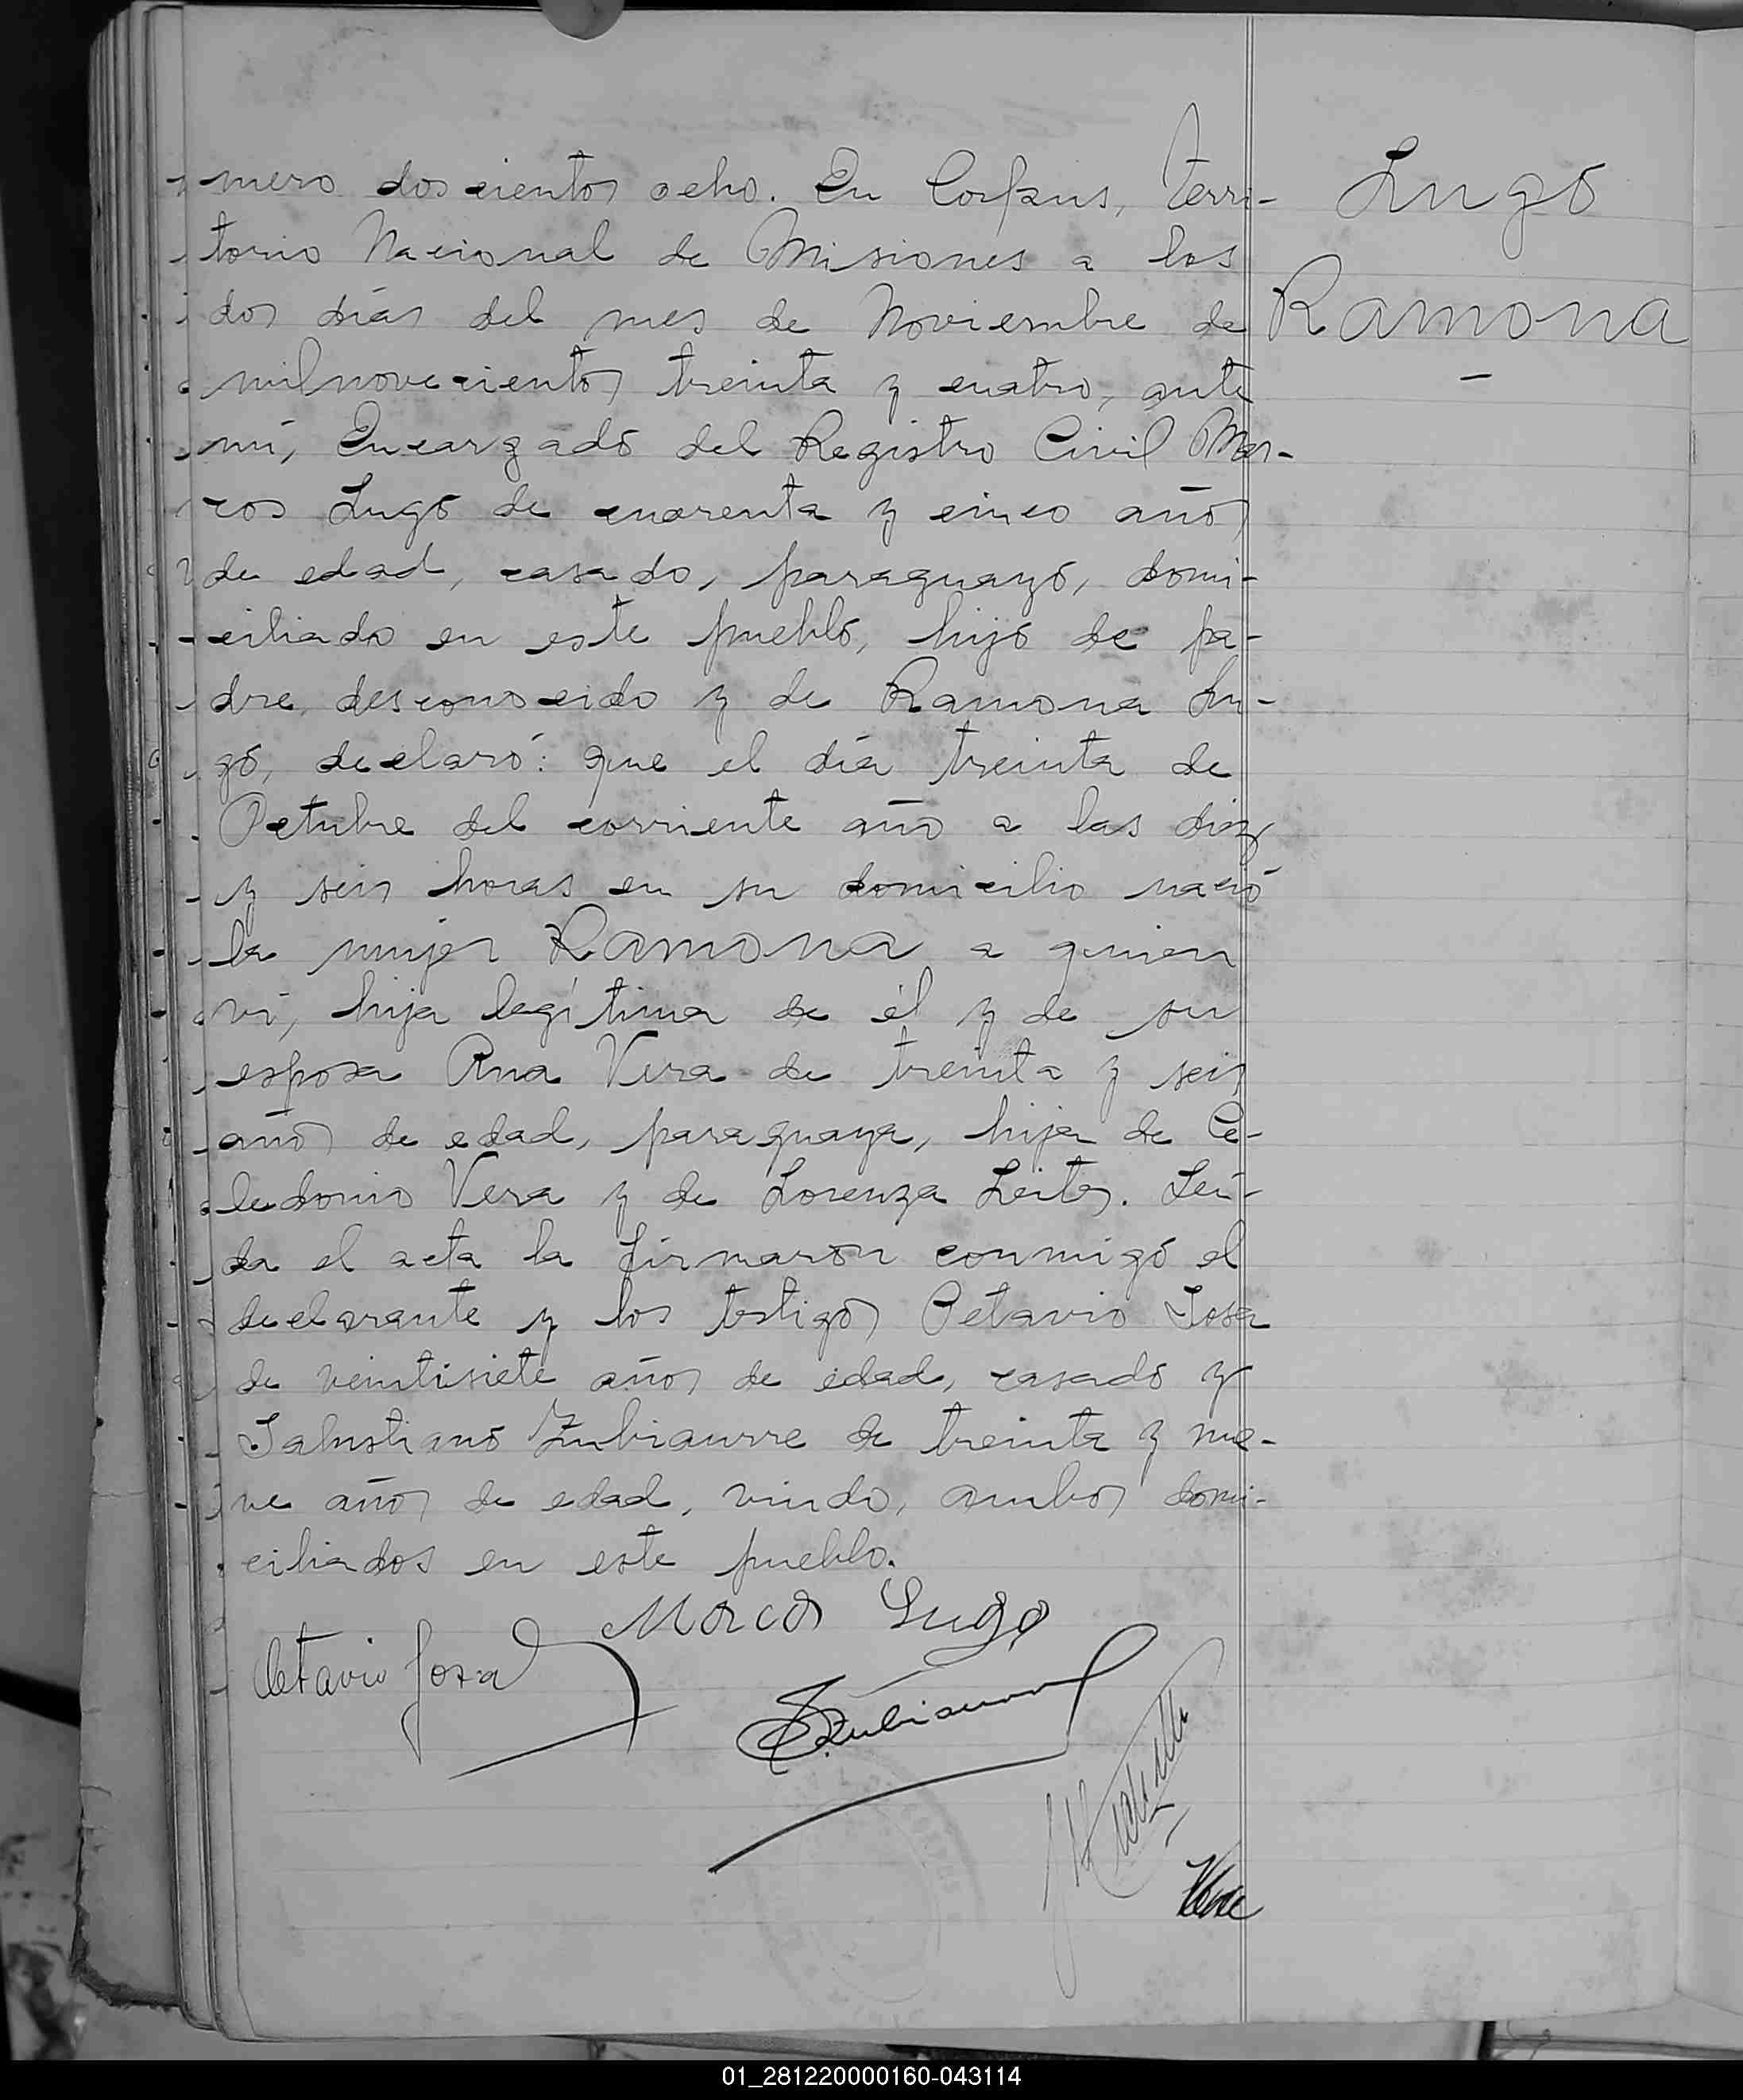 mero doscientos ocho. En Corpus, Terri-
torio Nacional de Misiones a los
dos días del mes de Noviembre de
milnovecientos treinta y cuatro, ante
mí, Encargado del Registro Civil Mar-
cos Lugo de cuarenta y cinco años
de edad, casado, paraguayo, domi-
ciliado en este pueblo, hijo de pa-
dre desconocido y de Ramona Lu-
go, declaró: que el día treinta de
Octubre del corriente año a las diez
y seis horas en su domicilio nació
la mujer Ramona a quien
ví, hija legítima de él y de su
esposa Ana Vera de treinta y seis
años de edad, paraguaya, hija de Ce-
ledonio Vera y de Lorenza Leites. Leí-
da el acta la firmaron conmigo el
declarante y los testigos Octavio Sosa
de veintisiete años de edad, casado y
Salustiano Zubiaurre de treinta y nue-
ve años de edad, viudo, ambos domi-
ciliados en este pueblo.
Lugo
Ramona
Marcos Lugo
Octavio Sosa
S Zubiaurre
01_281220000160-043114